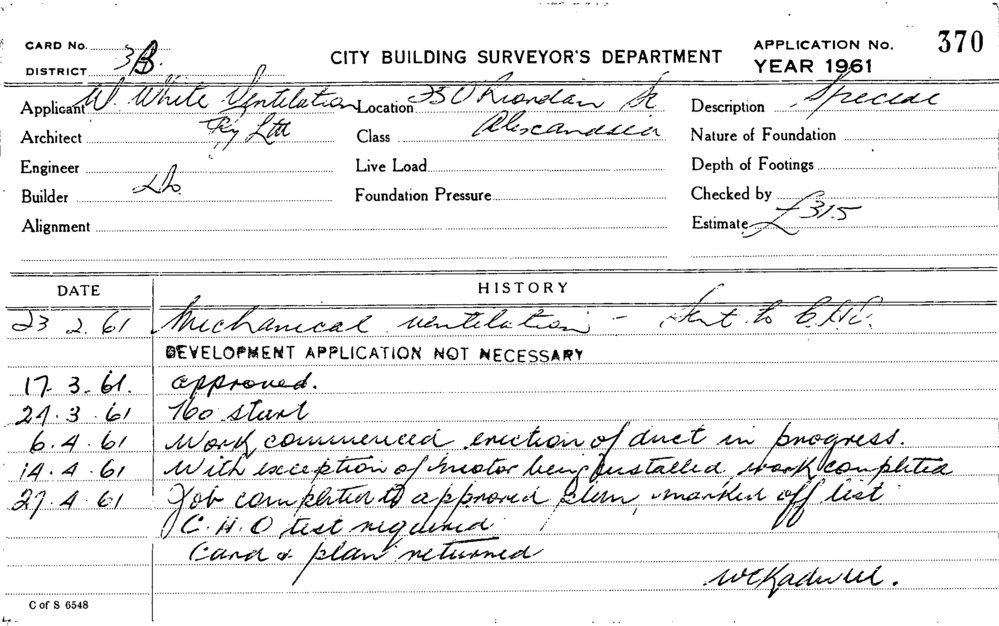 CARD No.
DISTRICT 3B.
CITY BUILDING SURVEYOR'S DEPARTMENT
APPLICATION No. 370
YEAR 1961
Applicant W. White Ventilation
Location 33 O'Riordan St
Description Special
Architect Pty Ltd
Class Alexandria
Nature of Foundation
Engineer
Live Load
Depth of Footings
Builder Do.
Foundation Pressure
Checked by
Alignment
Estimate £315
DATE HISTORY
23 2. 61 Mechanical ventilation - Sent to C.H.O.
DEVELOPMENT APPLICATION NOT NECESSARY
17. 3. 61. approved.
24. 3. 61 No start
6. 4. 61 Work commenced erection of duct in progress.
14. 4. 61 With exception of motor being installed, work completed
27. 4. 61 Job completed to approved plan, marked off list
C. H. O test required
Card & plan returned
C of S 6548